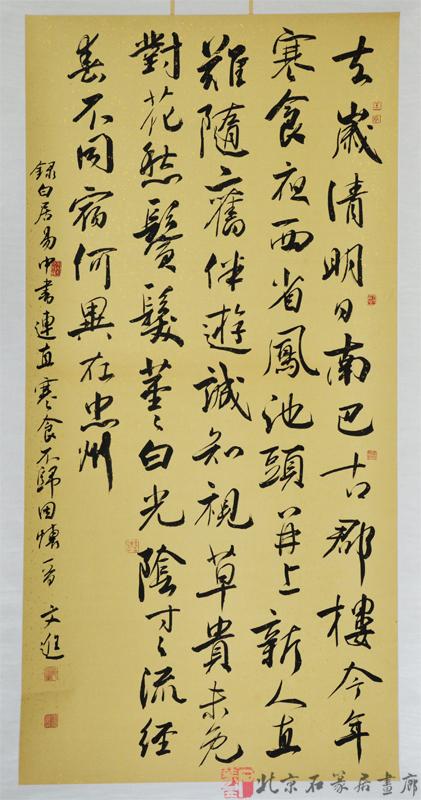 去歲清明日南巴古郡樓今年
寒食夜西省鳳池頭並上新人直
難隨舊伴遊誠知視草貴未免
對花愁鬢髮莖〻白光陰寸〻流經
春不同宿何異在忠州
錄白居易中書連直寒食不歸因懷一首 文
北京石篆居畫廊